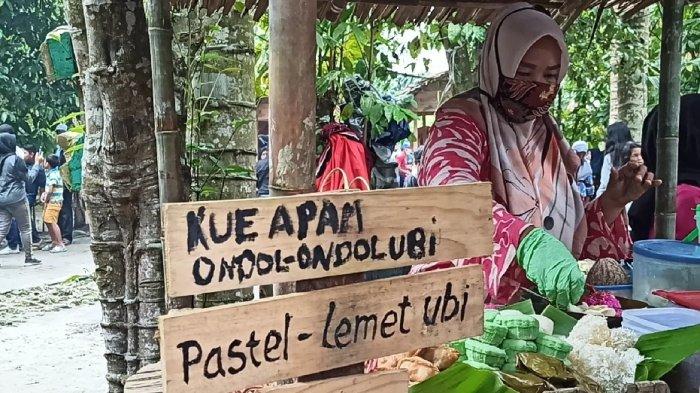 KUE APAM
ONDOL-ONDOL UBi
Pastel-Lemet ubi